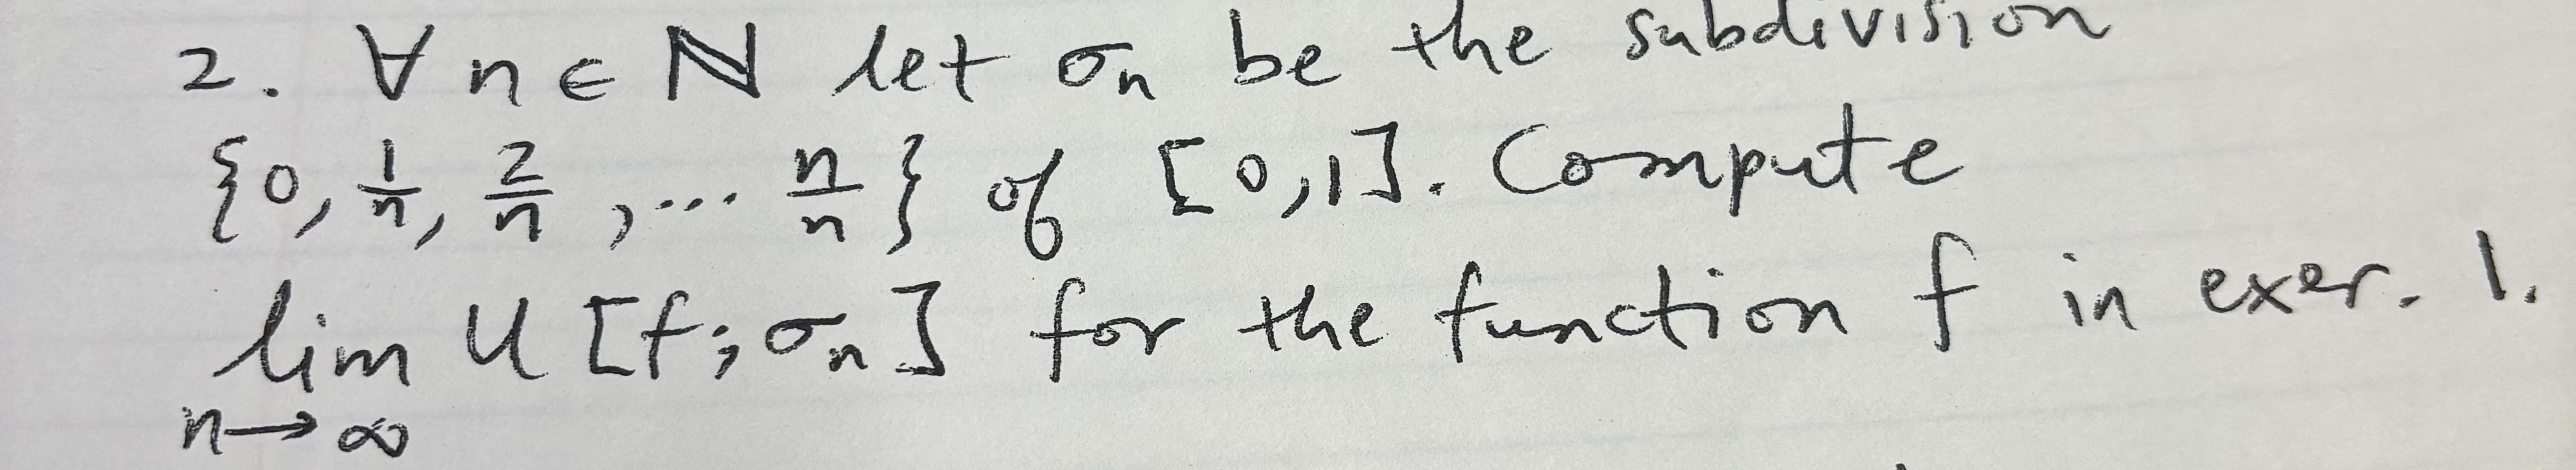 2. ∀ n ∈ ℕ let σn be the subdivision
{0, 1/n, 2/n, ... n/n} of [0,1]. Compute
lim U [f; σn] for the function f in exer. 1.
n→∞